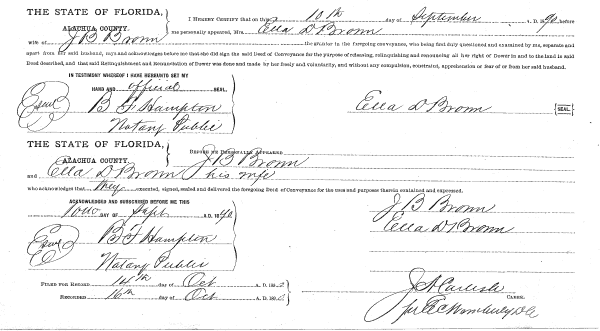 THE STATE OF FLORIDA,
ALACHUA COUNTY.
I HEREBY CERTIFY that on this 10th day of September A. D. 1890, before
me personally appeared, Mrs. Ella D Brown
wife of J B Brown the grantor in the foregoing conveyance, who being duly questioned and examined by me, separate and
apart from her said husband, says and acknowledges before me that she did sign the said Deed of Conveyance for the purpose of releasing, relinquishing and renouncing all her right of Dower in and to the land in said
Deed described, and that said Relinquishment and Renunciation of Dower was done and made by her freely and voluntarily, and without any compulsion, constraint, apprehension or fear of or from her said husband.
IN TESTIMONY WHEREOF I HAVE HEREUNTO SET MY
HAND AND official SEAL,
B F Hampton
Notary Public
Ella D Brown SEAL
THE STATE OF FLORIDA,
ALACHUA COUNTY.
BEFORE ME PERSONALLY APPEARED J B Brown
and Ella D Brown his wife
who acknowledges that they executed, signed, sealed and delivered the foregoing Deed of Conveyance for the uses and purposes therein contained and expressed.
ACKNOWLEDGED AND SUBSCRIBED BEFORE ME THIS
10th DAY OF Sept A. D. 1890
B F Hampton
Notary Public
J B Brown
Ella D Brown
FILED FOR RECORD 14th day of Oct A. D. 189
RECORDED 16th day of Oct A. D. 189
J A Carlisle
CLERK.